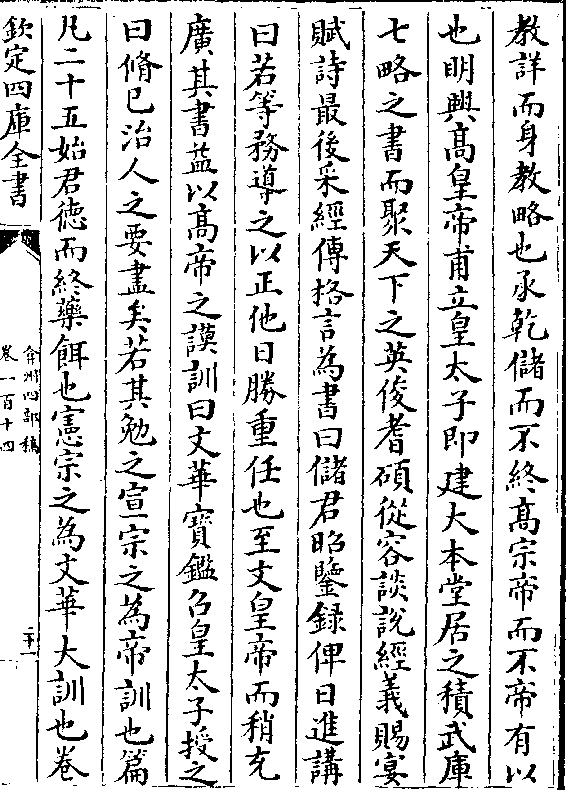 教詳而身教略也承乾儲而不終髙宗帝而不帝有以
也明興髙皇帝甫立皇太子即建大本堂居之積武庫
七略之書而聚天下之英俊耆碩從容談説經義賜宴
賦詩最後采經傳格言為書曰儲君昭鑒録俾日進講
曰若等務導之以正他日勝重任也至文皇帝而稍充
廣其書益以髙帝之謨訓曰文華寶鑑召皇太子授之
曰脩已治人之要盡矣若其勉之宣宗之為帝訓也篇
凡二十五始君徳而終藥餌也憲宗之為文華大訓也卷
欽定四庫全書
弇州四部稿
卷一百十四
二十一